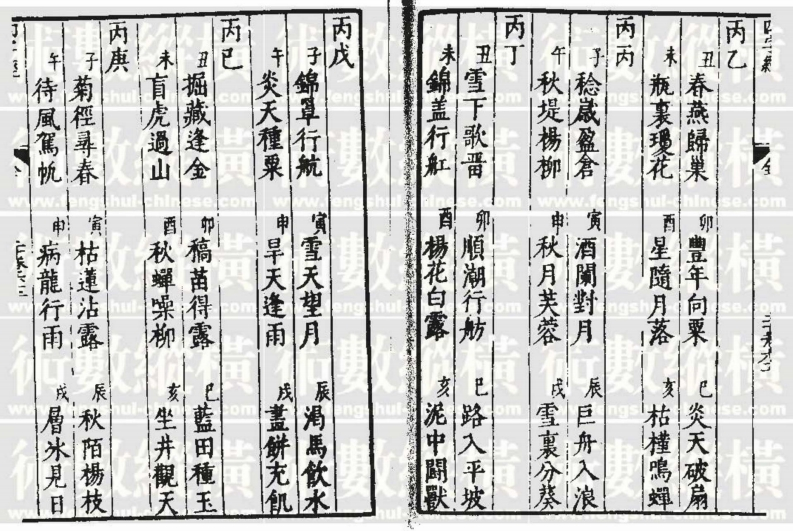 丙乙
丑 春燕歸巢 卯 豐年向粟 巳 炎天破扇
未 瓶裏瓊花 酉 星隨月落 亥 枯槿鳴蟬
丙丙
子 稔歲盈倉 寅 酒闌對月 辰 巨舟入浪
午 秋堤楊柳 申 秋月芙蓉 戌 雪裏分葵
丙丁
丑 雪下歌 卯 順潮行舫 巳 路入平坡
未 錦盖行舡 酉 楊花白露 亥 泥中鬪獸
丙戊
子 錦罩行航 寅 雪天望月 辰 渴馬飲水
午 炎天種粟 申 旱天逢雨 戌 畫餅充飢
丙己
丑 掘藏逢金 卯 稿苗得露 巳 藍田種玉
未 盲虎過山 酉 秋蟬噪柳 亥 坐井觀天
丙庚
子 菊徑尋春 寅 枯蓮沾露 辰 秋陌楊枝
午 待風駕帆 申 病龍行雨 戌 層冰見日
術數縱橫
www.fengshui-chinese.com